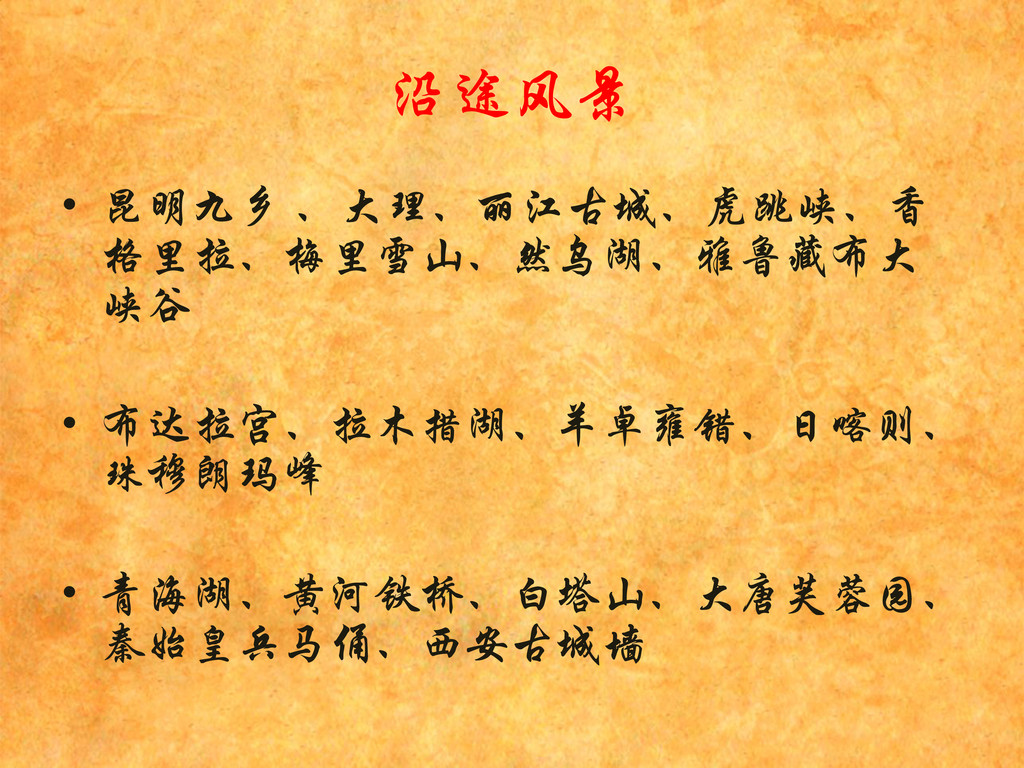 沿途风景
• 昆明九乡、大理、丽江古城、虎跳峡、香
格里拉、梅里雪山、然乌湖、雅鲁藏布大
峡谷
• 布达拉宫、拉木措湖、羊卓雍错、日喀则、
珠穆朗玛峰
• 青海湖、黄河铁桥、白塔山、大唐芙蓉园、
秦始皇兵马俑、西安古城墙